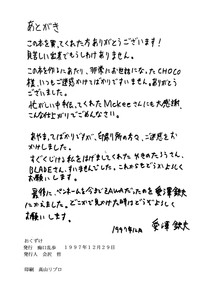 あとがき
この本を買ってくれた方ありがとうございます!
見苦しい出来でもうしわけありません。
この本を作るにあたり、非常にお世話になったCHOCO
様、いつもご迷惑かけてばかりですいません。ありがとう
ございました。
忙がしい中手伝ってくれたMckeeさんにも大感謝、
こんな仕上がりでごめんなさい。
あやまってばかりですが、印刷り所の方々、ご迷惑をお
かけしました。
すぐくじける私をはげましてくれた
BLADEさん、すいませんでした。これからもどうぞよろしく
お願いします。
最後に、ペンネームを今までの
にかえました。どこかで見かけた時はどうぞよろしく
お願いします。
1997年12月
おくずけ
発行 梅口乱歩 1997年12月29日
発行人 会沢 哲
印刷 高山リプロ